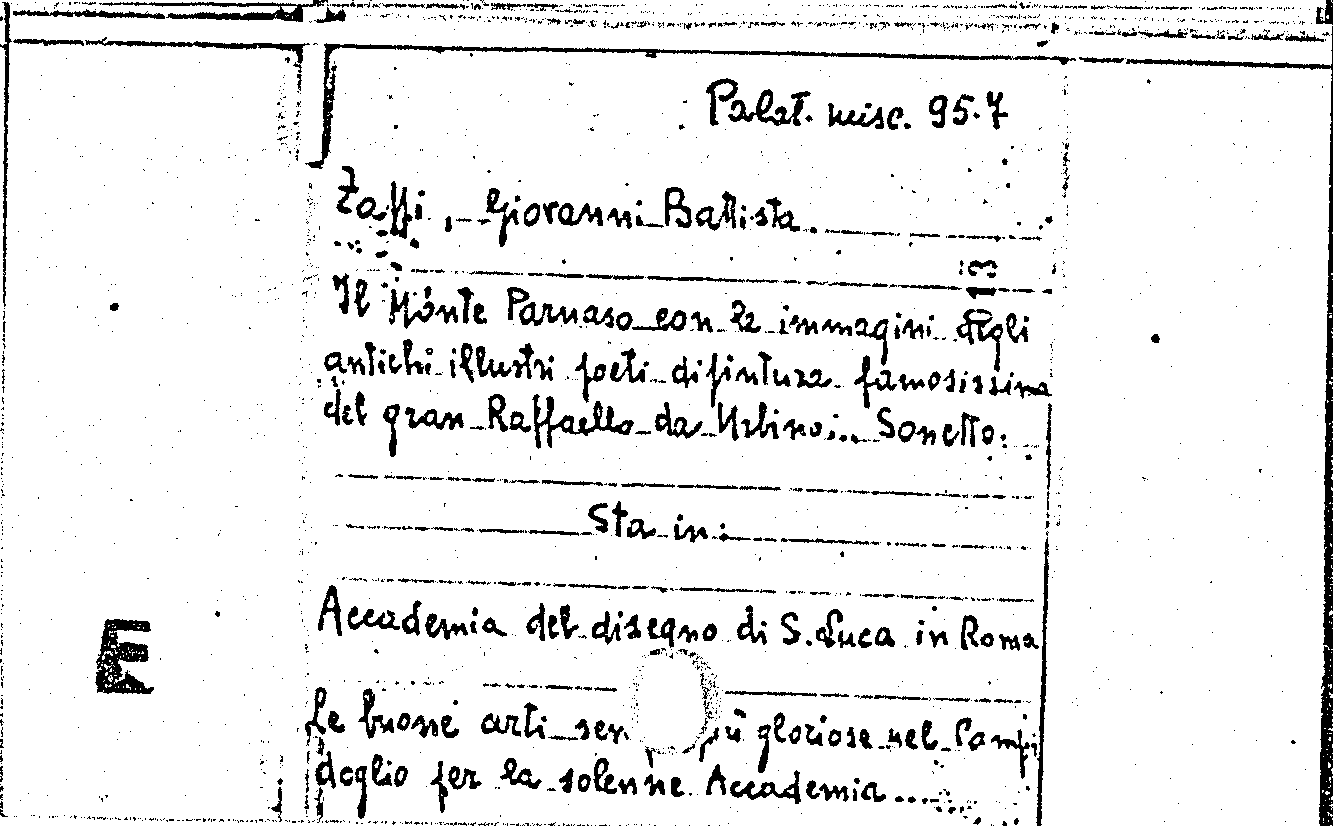 Palat. misc. 95.7
Zaffi, Giovanni Battista.
Il Monte Parnaso con le immagini degli
antichi illustri poeti dipintura famosissima
del gran Raffaello da Urbino... Sonetto.
Sta in:
Accademia del disegno di S. Luca in Roma
E
Le buone arti più gloriose nel Campi
doglio per la solenne Accademia....